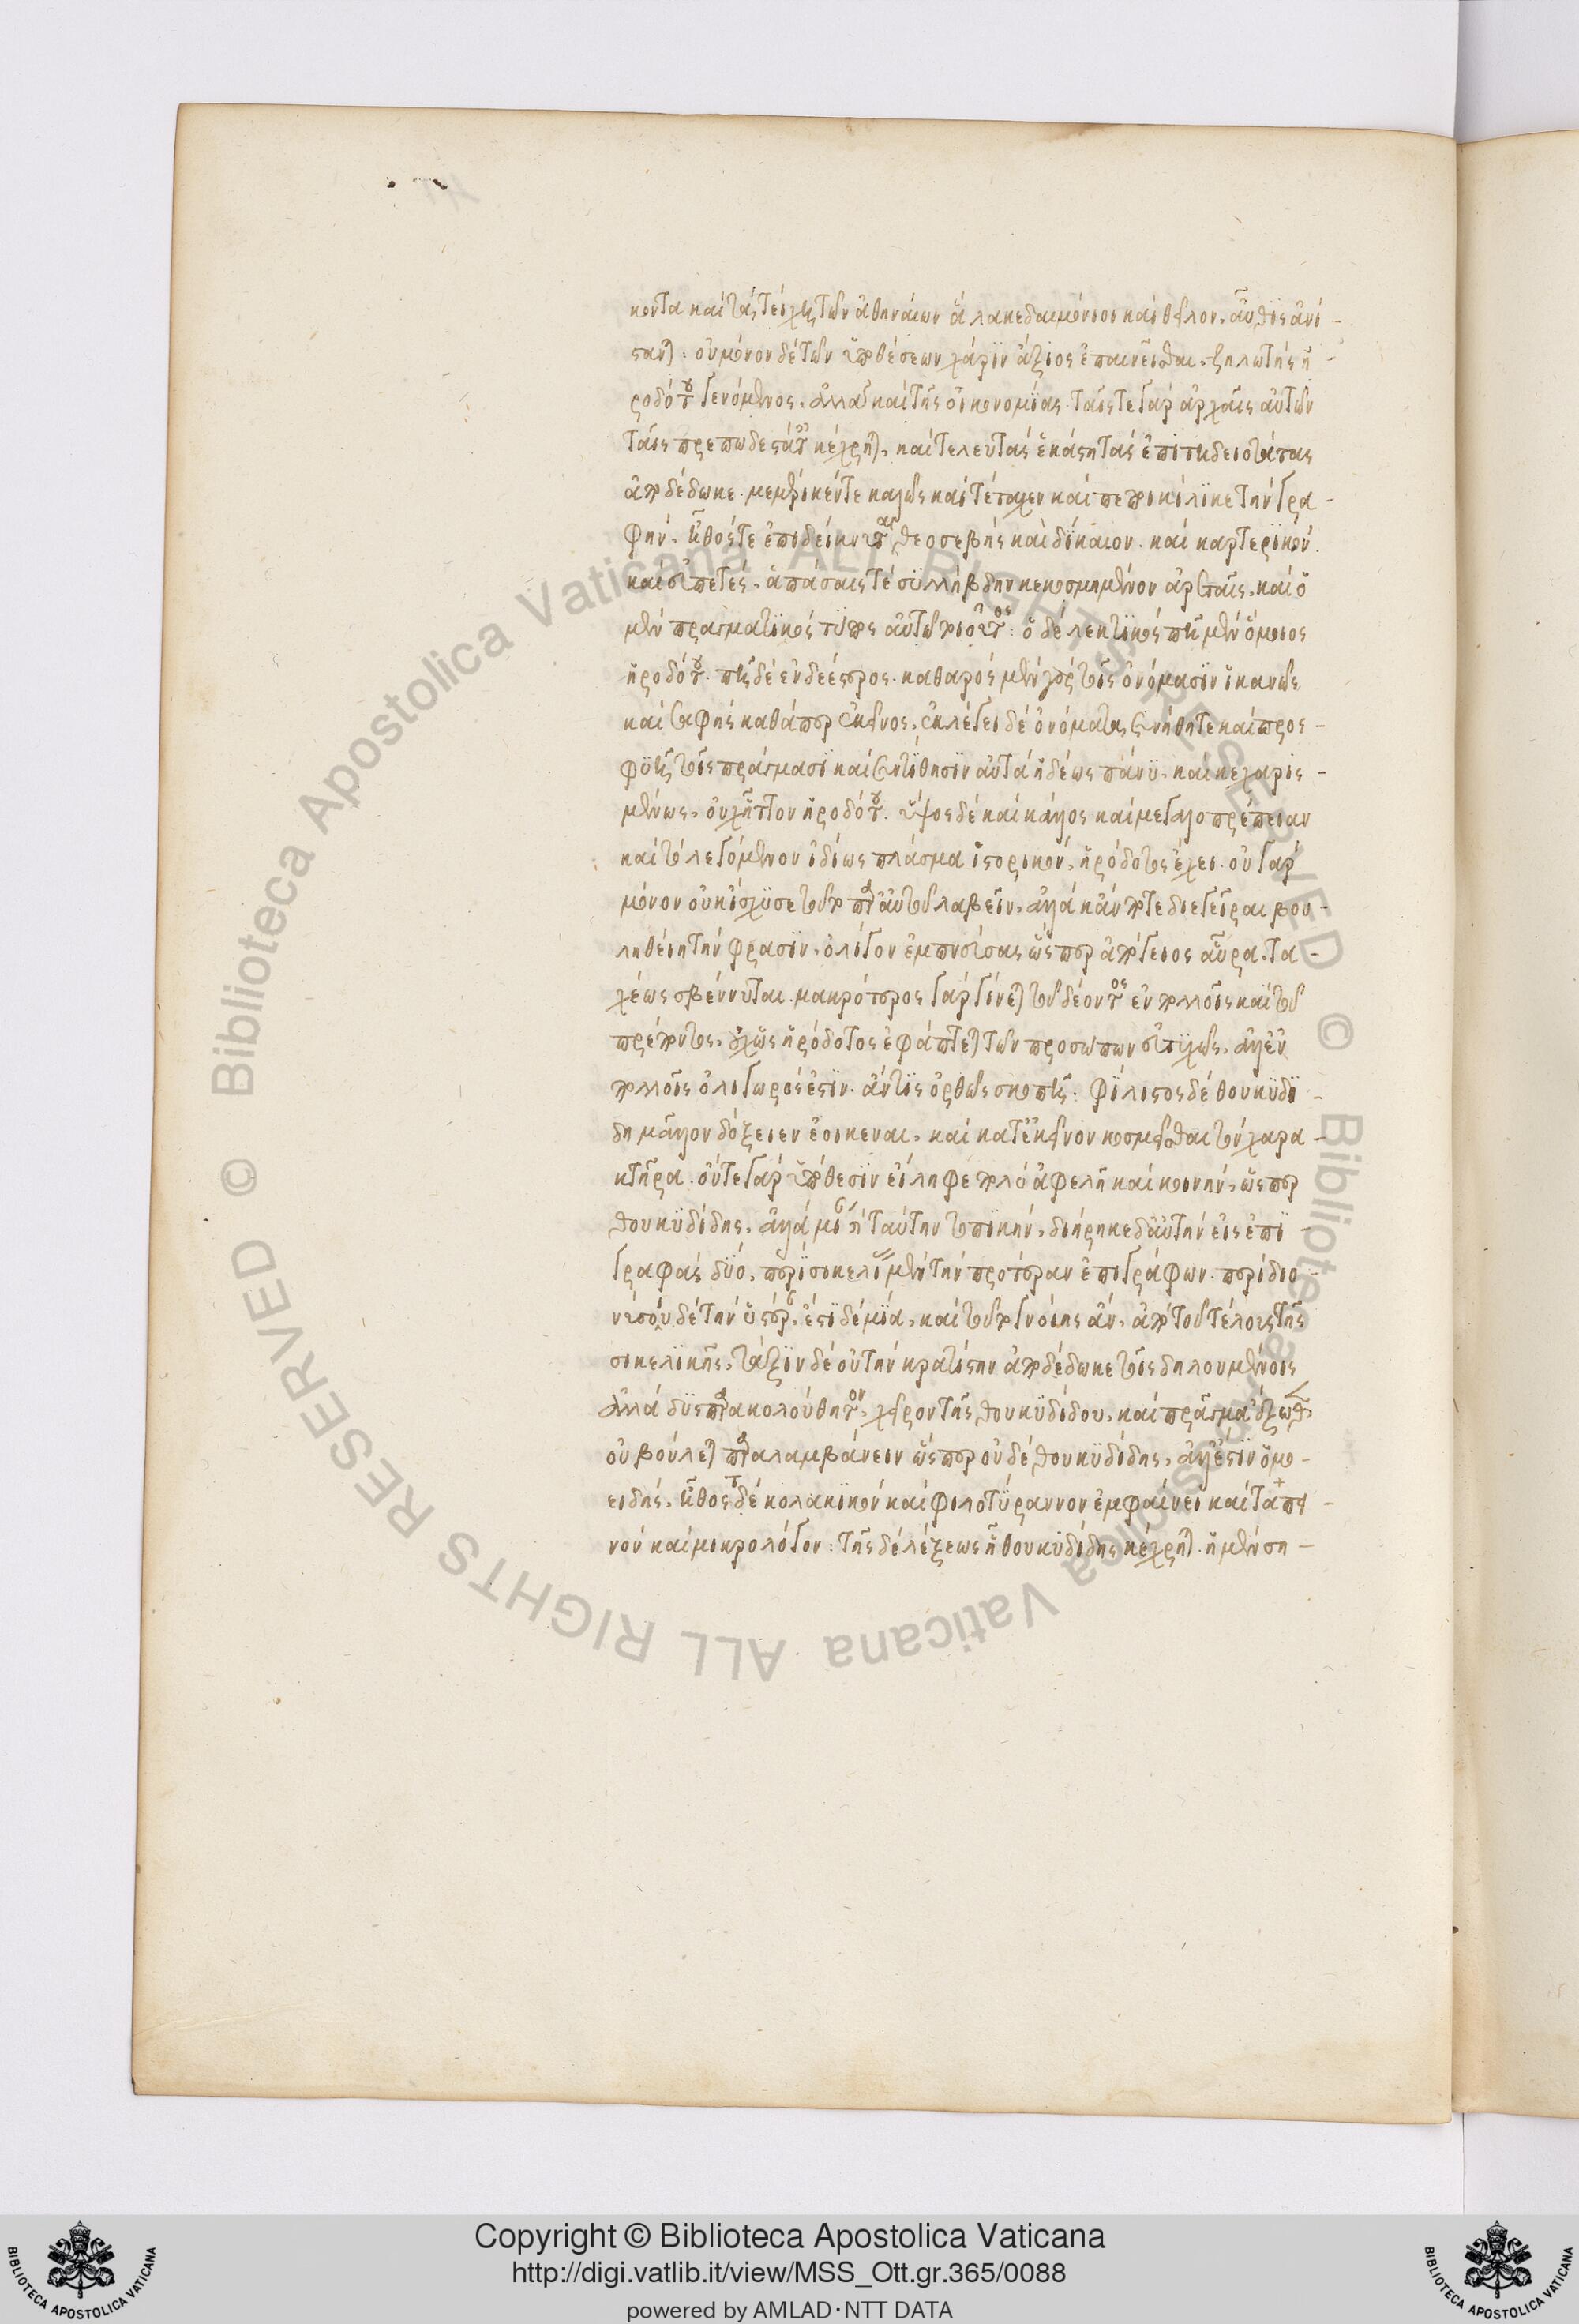 κοντα καὶ τὰ τείχη τῶν ἀθηναίων ἃ λακεδαιμόνιοι καθεῖλον, αὖθις ἀνί-
σταν): οὐ μόνον δὲ τῶν ὑποθέσεων χάριν ἄξιος ἐπαινεῖσθαι, ζηλωτὴς ἡ
ροδότου γενόμενος, ἀλλὰ καὶ τῆς οἰκονομίας. ταῖς τε γὰρ ἀρχαῖς αὐτῶν
ταῖς πρεπωδεστάτ κέχρη), καὶ τελευτὰς ἑκάστη τὰς ἐπιτηδειοτάτας
ἀποδέδωκε. μεμέρικέν τε καλῶς καὶ τέταχεν καὶ πεποικίλϊκε τὴν γρα-
φήν. ἦθός τε ἐπιδείκνυτ θεοσεβὴς καὶ δίκαιον. καὶ καρτερικόν.
καὶ εὐπετές, ἁπάσαις τὲ συλλήβδην κεκοσμημένον ἀρεταῖς. καὶ ὁ
μὲν πραγματϊκὸς τύπος αὐτῷ τοιοῦτος: ὁ δὲ λεκτϊκὸς πῆ μὲν ὅμοιος
ἡροδότου. πῆ δὲ ἐνδεέστερος. καθαρὸς μὲν γὰρ τοῖς ὀνόμασϊν ἱκανῶς
καὶ σαφὴς καθάπερ ἐκεῖνος, ἐκλέγει δὲ ὀνόματα συνήθη τε καὶ προς-
φϋῆ τοῖς πράγμασϊ καὶ συντίθησϊν αὐτὰ ἡδέως πάνϋ. καὶ κεχαρις-
μένως, οὐχ ἧττον ἡροδότου. ὕψος δὲ καὶ κάλλος καὶ μεγαλοπρέπειαν
καὶ τὸ λεγόμενον ἰδίως πλάσμα ἱστορικόν, ἡρόδοτος ἔχει. οὐ γὰρ
μόνον οὐκ ἴσχϋσε τοῦτο παρ' αὐτοῦ λαβεῖν, ἀλλὰ κἄν ποτε διεγεῖραι βου-
ληθείη τὴν φράσϊν, ὀλίγον ἐμπνεύσας ὥσπερ ἀπόγειος αὖρα. τα-
χέως σβέννυται. μακρότερος γὰρ γίνε) τοῦ δέοντος ἐν πολλοῖς καὶ τοῦ
πρέποντος, ἡρόδοτος ἐφάπτε) τῶν προσώπων εὐτϋχῶς, ἀλλ' ἐν
πολλοῖς ὀλίγωρός ἐστϊν. ἄν τις ὀρθῶς σκοπῇ: φίλιστος δὲ θουκϋδϊ-
δῃ μᾶλλον δόξειεν ἐοικέναι, καὶ κατ' ἐκεῖνον κοσμεῖσθαι τὸν χαρα-
κτῆρα. οὔτε γὰρ ὑπόθεσϊν εἴληφε πολὺ ἀφελῆ καὶ κοινήν, ὥσπερ
θουκϋδίδης, ἀλλὰ μίαν ταύτην τοπϊκήν, διήρηκε δ' αὐτὴν εἰς ἐπϊ-
γραφὰς δϋό, περὶ σικελί μὲν τὴν προτέραν ἐπιγράφων. περὶ διο-
νυσίου δὲ τὴν ὑστέρ, ἔστϊ δὲ μία, καὶ τοῦτο γνοίης ἄν, ἀπὸ τοῦ τέλους τῆς
σικελϊκῆς, τάξϊν δὲ οὐ τὴν κρατίστην ἀποδέδωκε τοῖς δηλουμένοις
ἀλλὰ δϋσπαρακολούθητον, χεῖρον τῆς θουκϋδίδου, καὶ πρᾶγμα
οὐ βούλε) παραλαμβάνειν ὥσπερ οὐδὲ θουκϋδίδης, ἀλλ' ἐστϊν ὁμο-
ειδής, ἦθος δὲ κολακϊκὸν καὶ φιλοτύραννον ἐμφαίνει καὶ ταπει-
νὸν καὶ μικρολόγον: τῆς δὲ λέξεως ᾗ θουκϋδίδης κέχρη). ἡ μὲν ση-
Copyright © Biblioteca Apostolica Vaticana
http://digi.vatlib.it/view/MSS_Ott.gr.365/0088
powered by AMLAD·NTT DATA